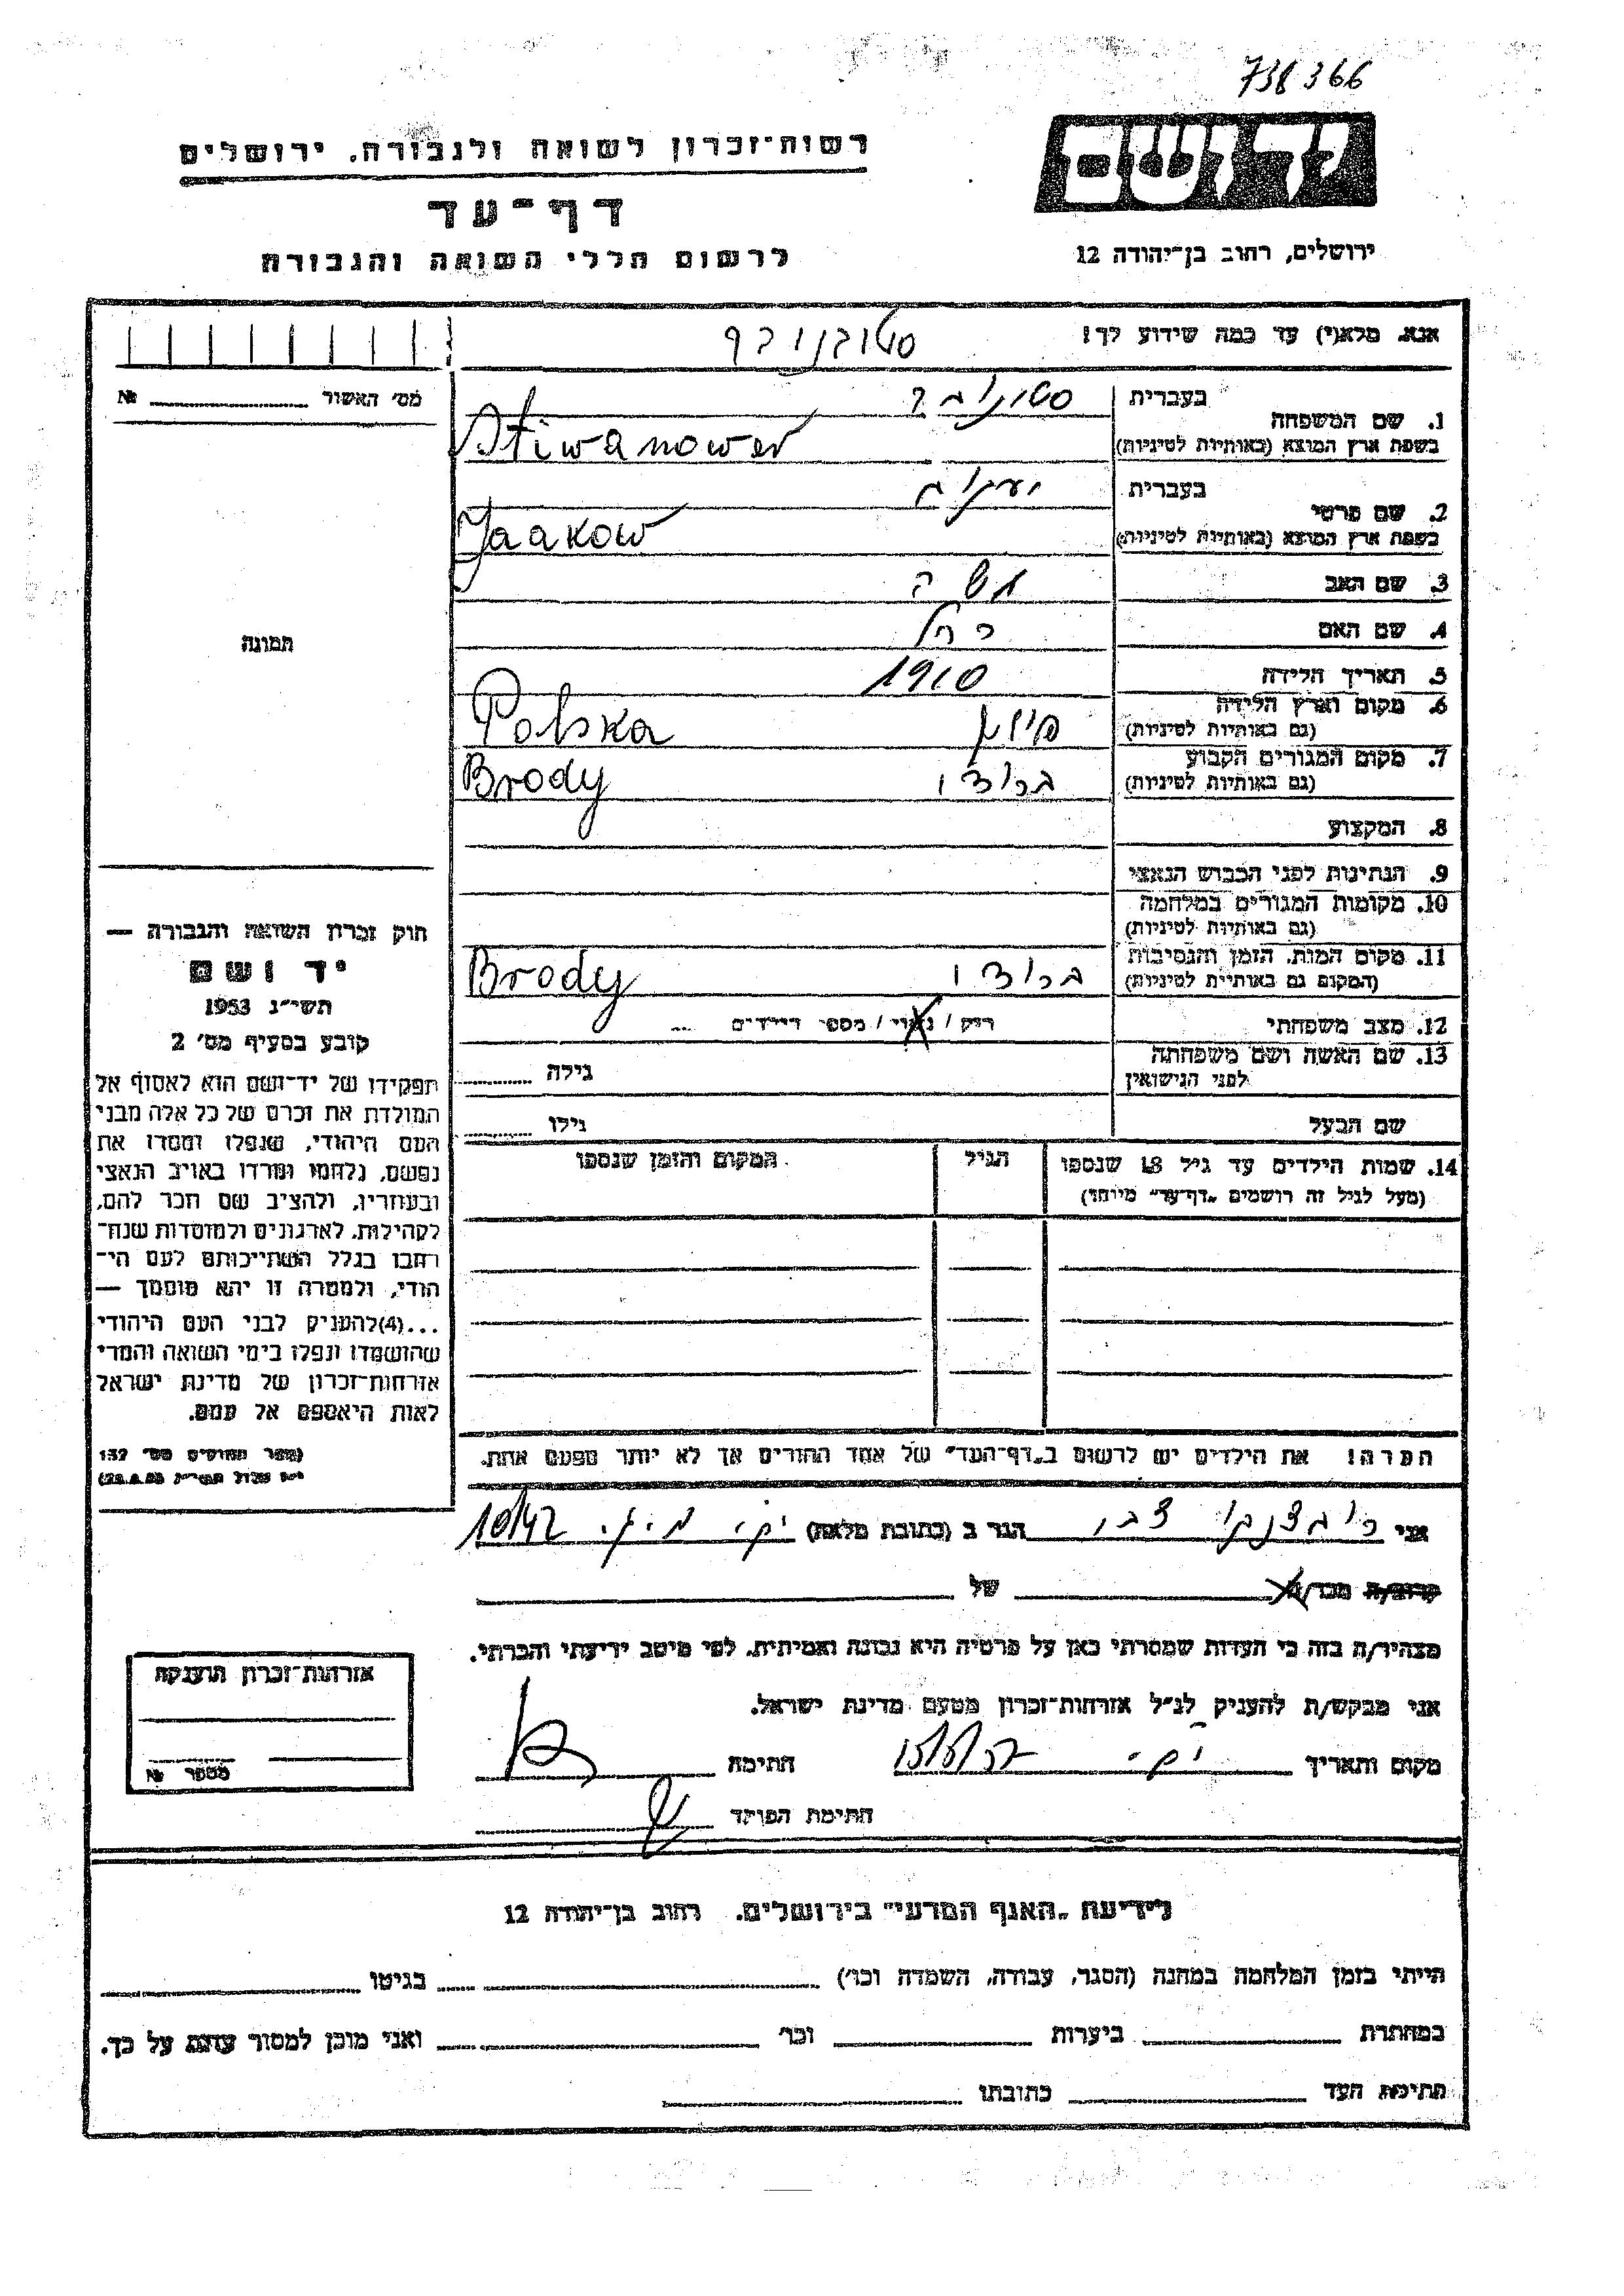 738366
יד ושם
ירושלים, רחוב בן־יהודה 12
רשות־זכרון לשואה ולגבורה, ירושלים
דף־עד
לרשום חללי השואה והגבורה
אנא, מלא(י) עד כמה שידוע לך!
מס' האשור № 
1. שם המשפחה
בעברית
בשפת ארץ המוצא (באותיות לטיניות)
Stiwanower
2. שם פרטי
בעברית יעקוב
בשפת ארץ המוצא (באותיות לטיניות)
Jaakow
3. שם האב משה
4. שם האם רחל
5. תאריך הלידה 1910
6. מקום וארץ הלידה
(גם באותיות לטיניות) פולין Polska
7. מקום המגורים הקבוע
(גם באותיות לטיניות) ברודי Brody
8. המקצוע
9. הנתינות לפני הכבוש הנאצי
10. מקומות המגורים במלחמה
(גם באותיות לטיניות)
11. מקום המות, הזמן והנסיבות
(המקום גם באותיות לטיניות) ברודי Brody
12. מצב משפחתי רוק / נשוי / מספר הילדים
13. שם האשה ושם משפחתה
לפני הנישואין גילה
שם הבעל גילו
14. שמות הילדים עד גיל 18 שנספו הגיל המקום והזמן שנספו
(מעל לגיל זה רושמים „דף־עד" מיוחד)
הערה! את הילדים יש לרשום ב„דף־העד" של אחד ההורים אך לא יותר מפעם אחת.
תמונה
חוק זכרון השואה והגבורה —
יד ושם
תשי"ג 1953
קובע בסעיף מס' 2
תפקידו של יד־ושם הוא לאסוף אל
המולדת את זכרם של כל אלה מבני
העם היהודי, שנפלו ומסרו את
נפשם, נלחמו ומרדו באויב הנאצי
ובעוזריו, ולהציב שם וזכר להם,
לקהילות, לארגונים ולמוסדות שנח־
רבו בגלל השתייכותם לעם הי־
הודי, ולמטרה זו יהא מוסמך —
...(4) להעניק לבני העם היהודי
שהושמדו ונפלו בימי השואה והמרי
אזרחות־זכרון של מדינת ישראל
לאות היאספם אל עמם.
(ספר החוקים מס' 132
אני הגר ב (כתובת מלאה) 10/42
קרוב/ה מכר/ה של
מצהיר/ה בזה כי העדות שמסרתי כאן על פרטיה היא נכונה ואמיתית, לפי מיטב ידיעתי והכרתי.
אני מבקש/ת להעניק לנ"ל אזרחות־זכרון מטעם מדינת ישראל.
מקום ותאריך חתימה
חתימת הפוקד
אזרחות־זכרון הוענקה
מספר №
לידיעת „האגף המדעי" בירושלים, רחוב בן־יהודה 12
הייתי בזמן המלחמה במחנה (הסגר, עבודה, השמדה וכו') בגיטו
במחתרת ביערות וכו' ואני מוכן למסור עדות על כך.
חתימת העד כתובתו